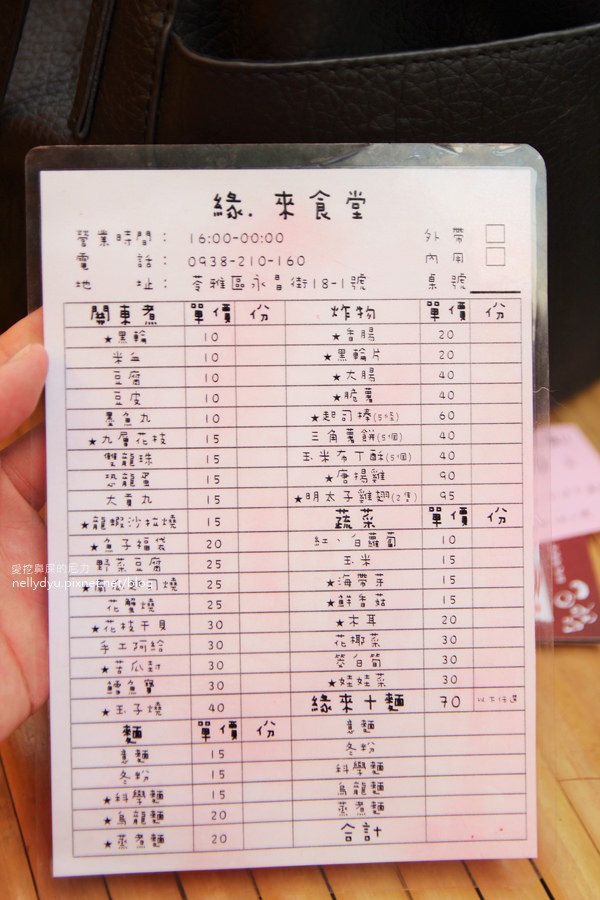 緣．來食堂
營業時間： 16:00-00:00 外帶
電話： 0938-210-160 內用
地址： 苓雅區永昌街18-1號 桌號
關東煮 單價 份 炸物 單價 份
★黑輪 10 ★香腸 20
米血 10 ★黑輪片 20
豆腐 10 ★大腸 40
豆皮 10 ★脆薯 40
墨魚丸 10 ★起司棒(5條) 60
★九層花枝 15 三角薯餅(5個) 40
雙龍珠 15 玉米布丁酥(5個) 40
恐龍蛋 15 ★唐揚雞 90
大貢丸 15 ★明太子雞翅(2隻) 95
★龍蝦沙拉燒 15 蔬菜 單價 份
★魚子福袋 20 紅、白蘿蔔 10
野菜豆腐 25 玉米 15
燒 25 ★海帶芽 15
花蟹燒 25 ★鮮香菇 15
★花枝干貝 30 ★木耳 20
手工阿給 30 花椰菜 30
★苦瓜封 30 筊白筍 30
鱈魚寶 30 ★娃娃菜 30
★玉子燒 40 緣來十麵 70 以下任選
麵 單價 份 意麵
意麵 15 冬粉
冬粉 15 科學麵
★科學麵 15 烏龍麵
★烏龍麵 20 蒸煮麵
★蒸煮麵 20 合計
愛挖鼻屎的巨力
nellydyu.pixnet.net/blog